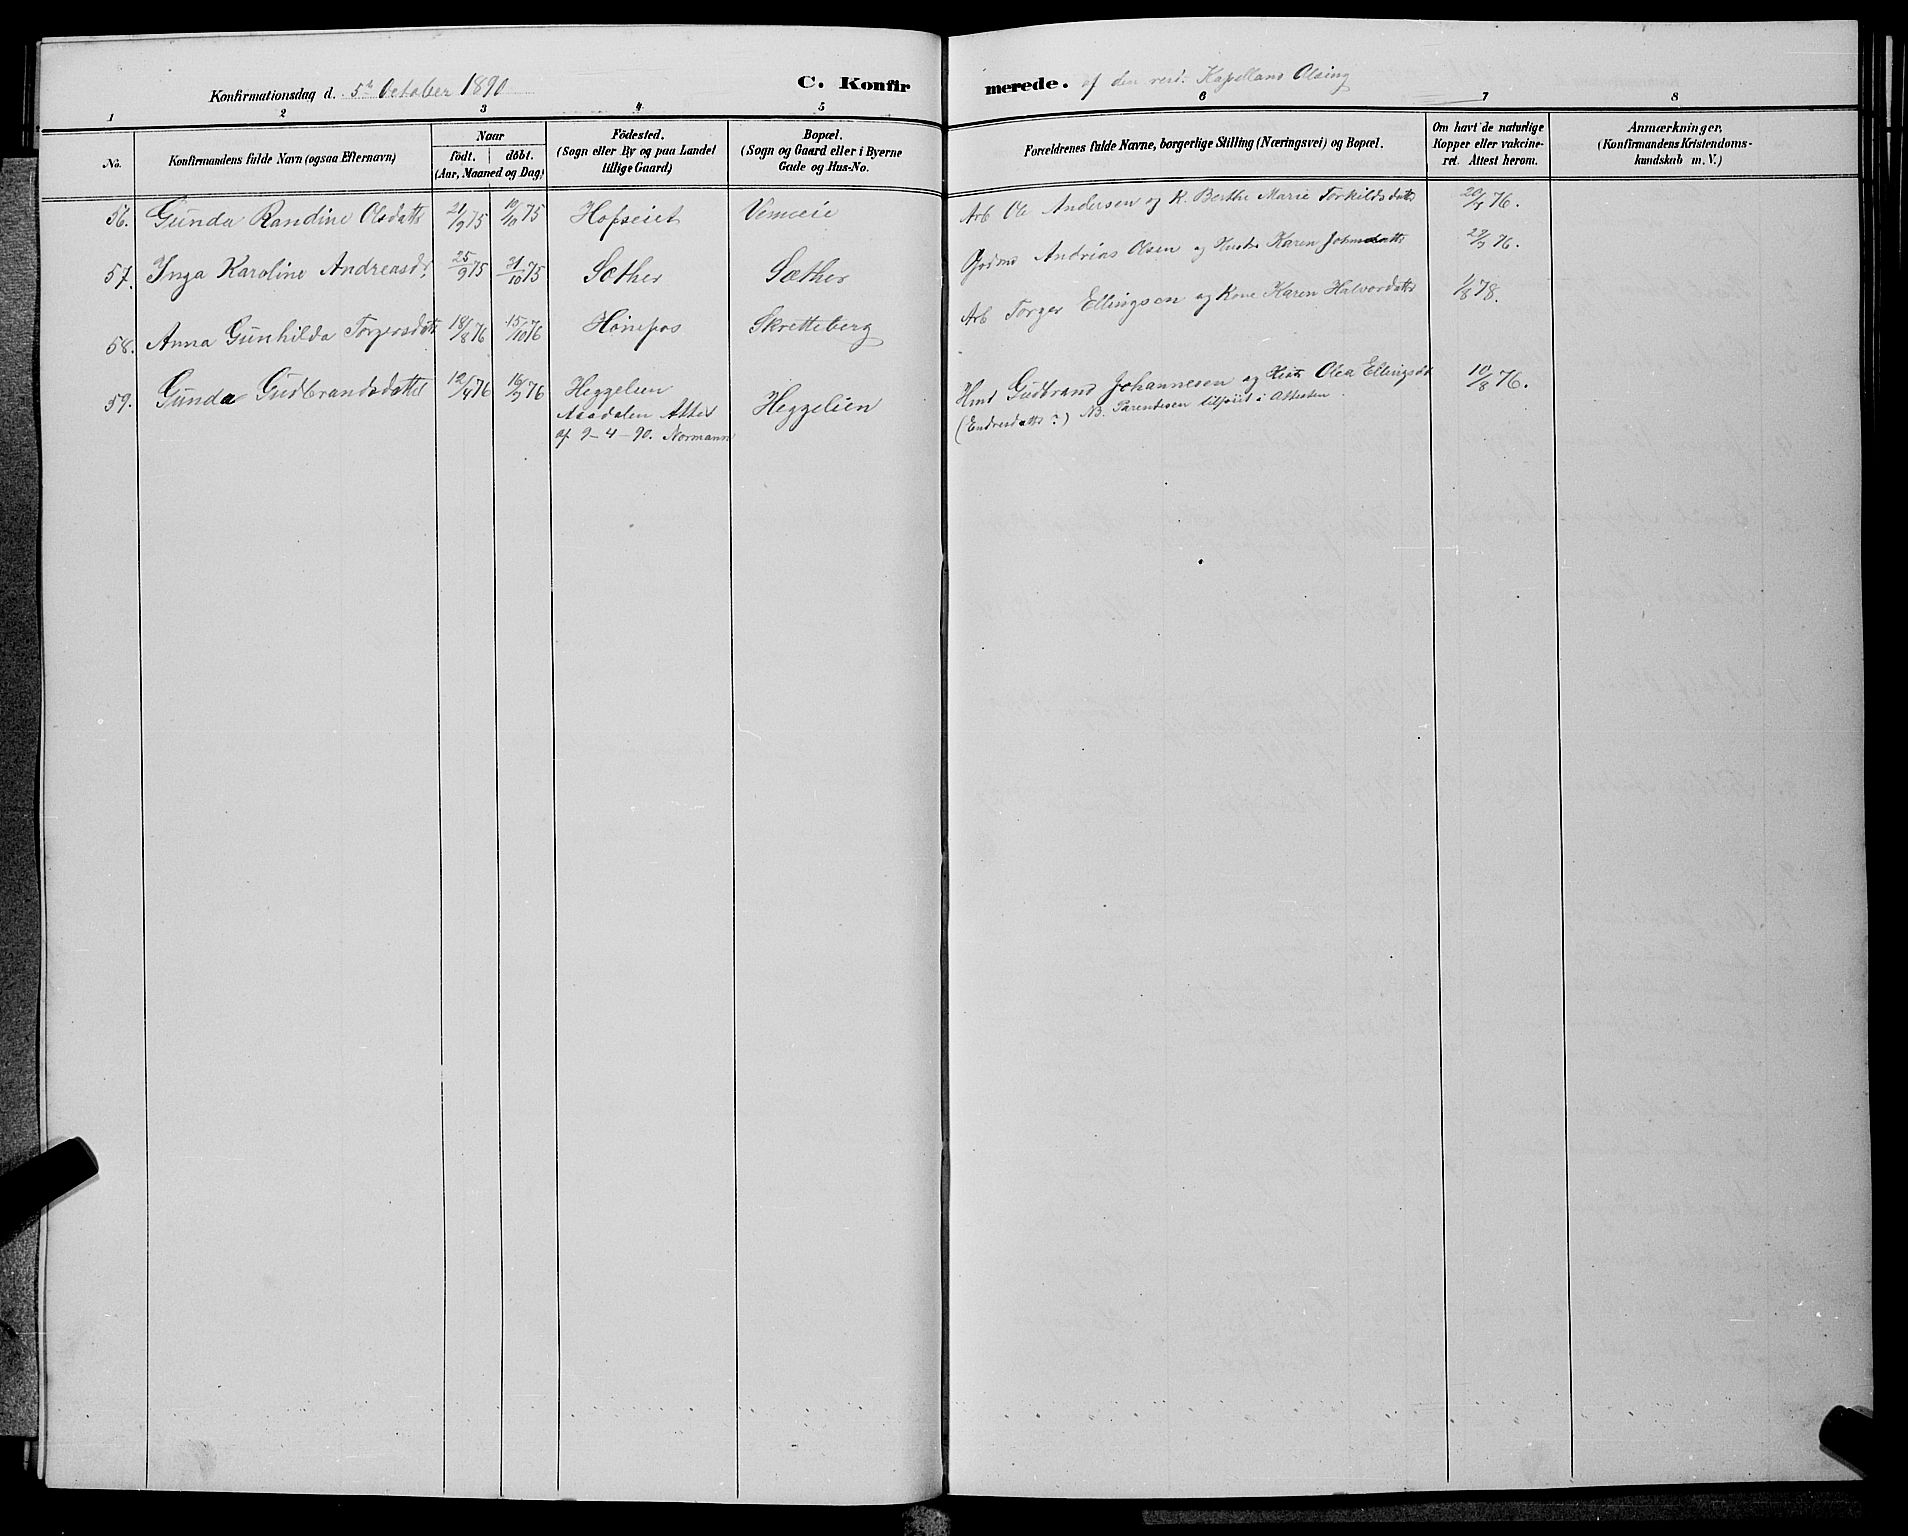 Konfirmationsdag d. 5te October 1890 C. Konfirmerede. af den resd. Kapelland Olsing
1 2 3 4 5 6 7 8
No.
Konfirmandens fulde Navn (ogsaa Efternavn)
Naar
födt. döbt.
(Aar, Maaned og Dag)
Födested.
(Sogn eller By og paa Landet
tillige Gaard)
Bopæl.
(Sogn og Gaard eller i Byerne
Gade og Hus-No.
Forældrenes fulde Navne, borgerlige Stilling (Næringsvei) og Bopæl.
Om havt de naturlige
Kopper eller vakcine-
ret. Attest herom.
Anmærkninger.
(Konfirmandens Kristendoms-
kundskab m. V.)
56. Gunda Randine Olsdatts 21/9 75 10/10 75 Hofseiet Vemæie Arb Ole Andersen og K. Berthe Marie Torkildsdatts 20/4 76.
57. Inga Karoline Andreasdt. 25/9 75 31/10 75 Sæther Sæther Gdmd Andrias Olsen og Hustr Karen Johnsdatts 29/9 76.
58. Anna Gunhilda Torgersdatt 18/8 76 15/10 76 Hönefos Skretteberg Arb Torger Ellingsen og Kone Karen Halvordatts 1/8 78.
59. Gunda Gudbrandsdatter 12/4 76 16/7 76 Heggelien Heggelien Hmd Gudbrand Johannesen og Hustr Olea Ellingsdt 10/8 76.
Aasdalen Attes
af 9-4-90. Normann
(Endresdatts?) NB. Parentesen tilföiet i Attesten.